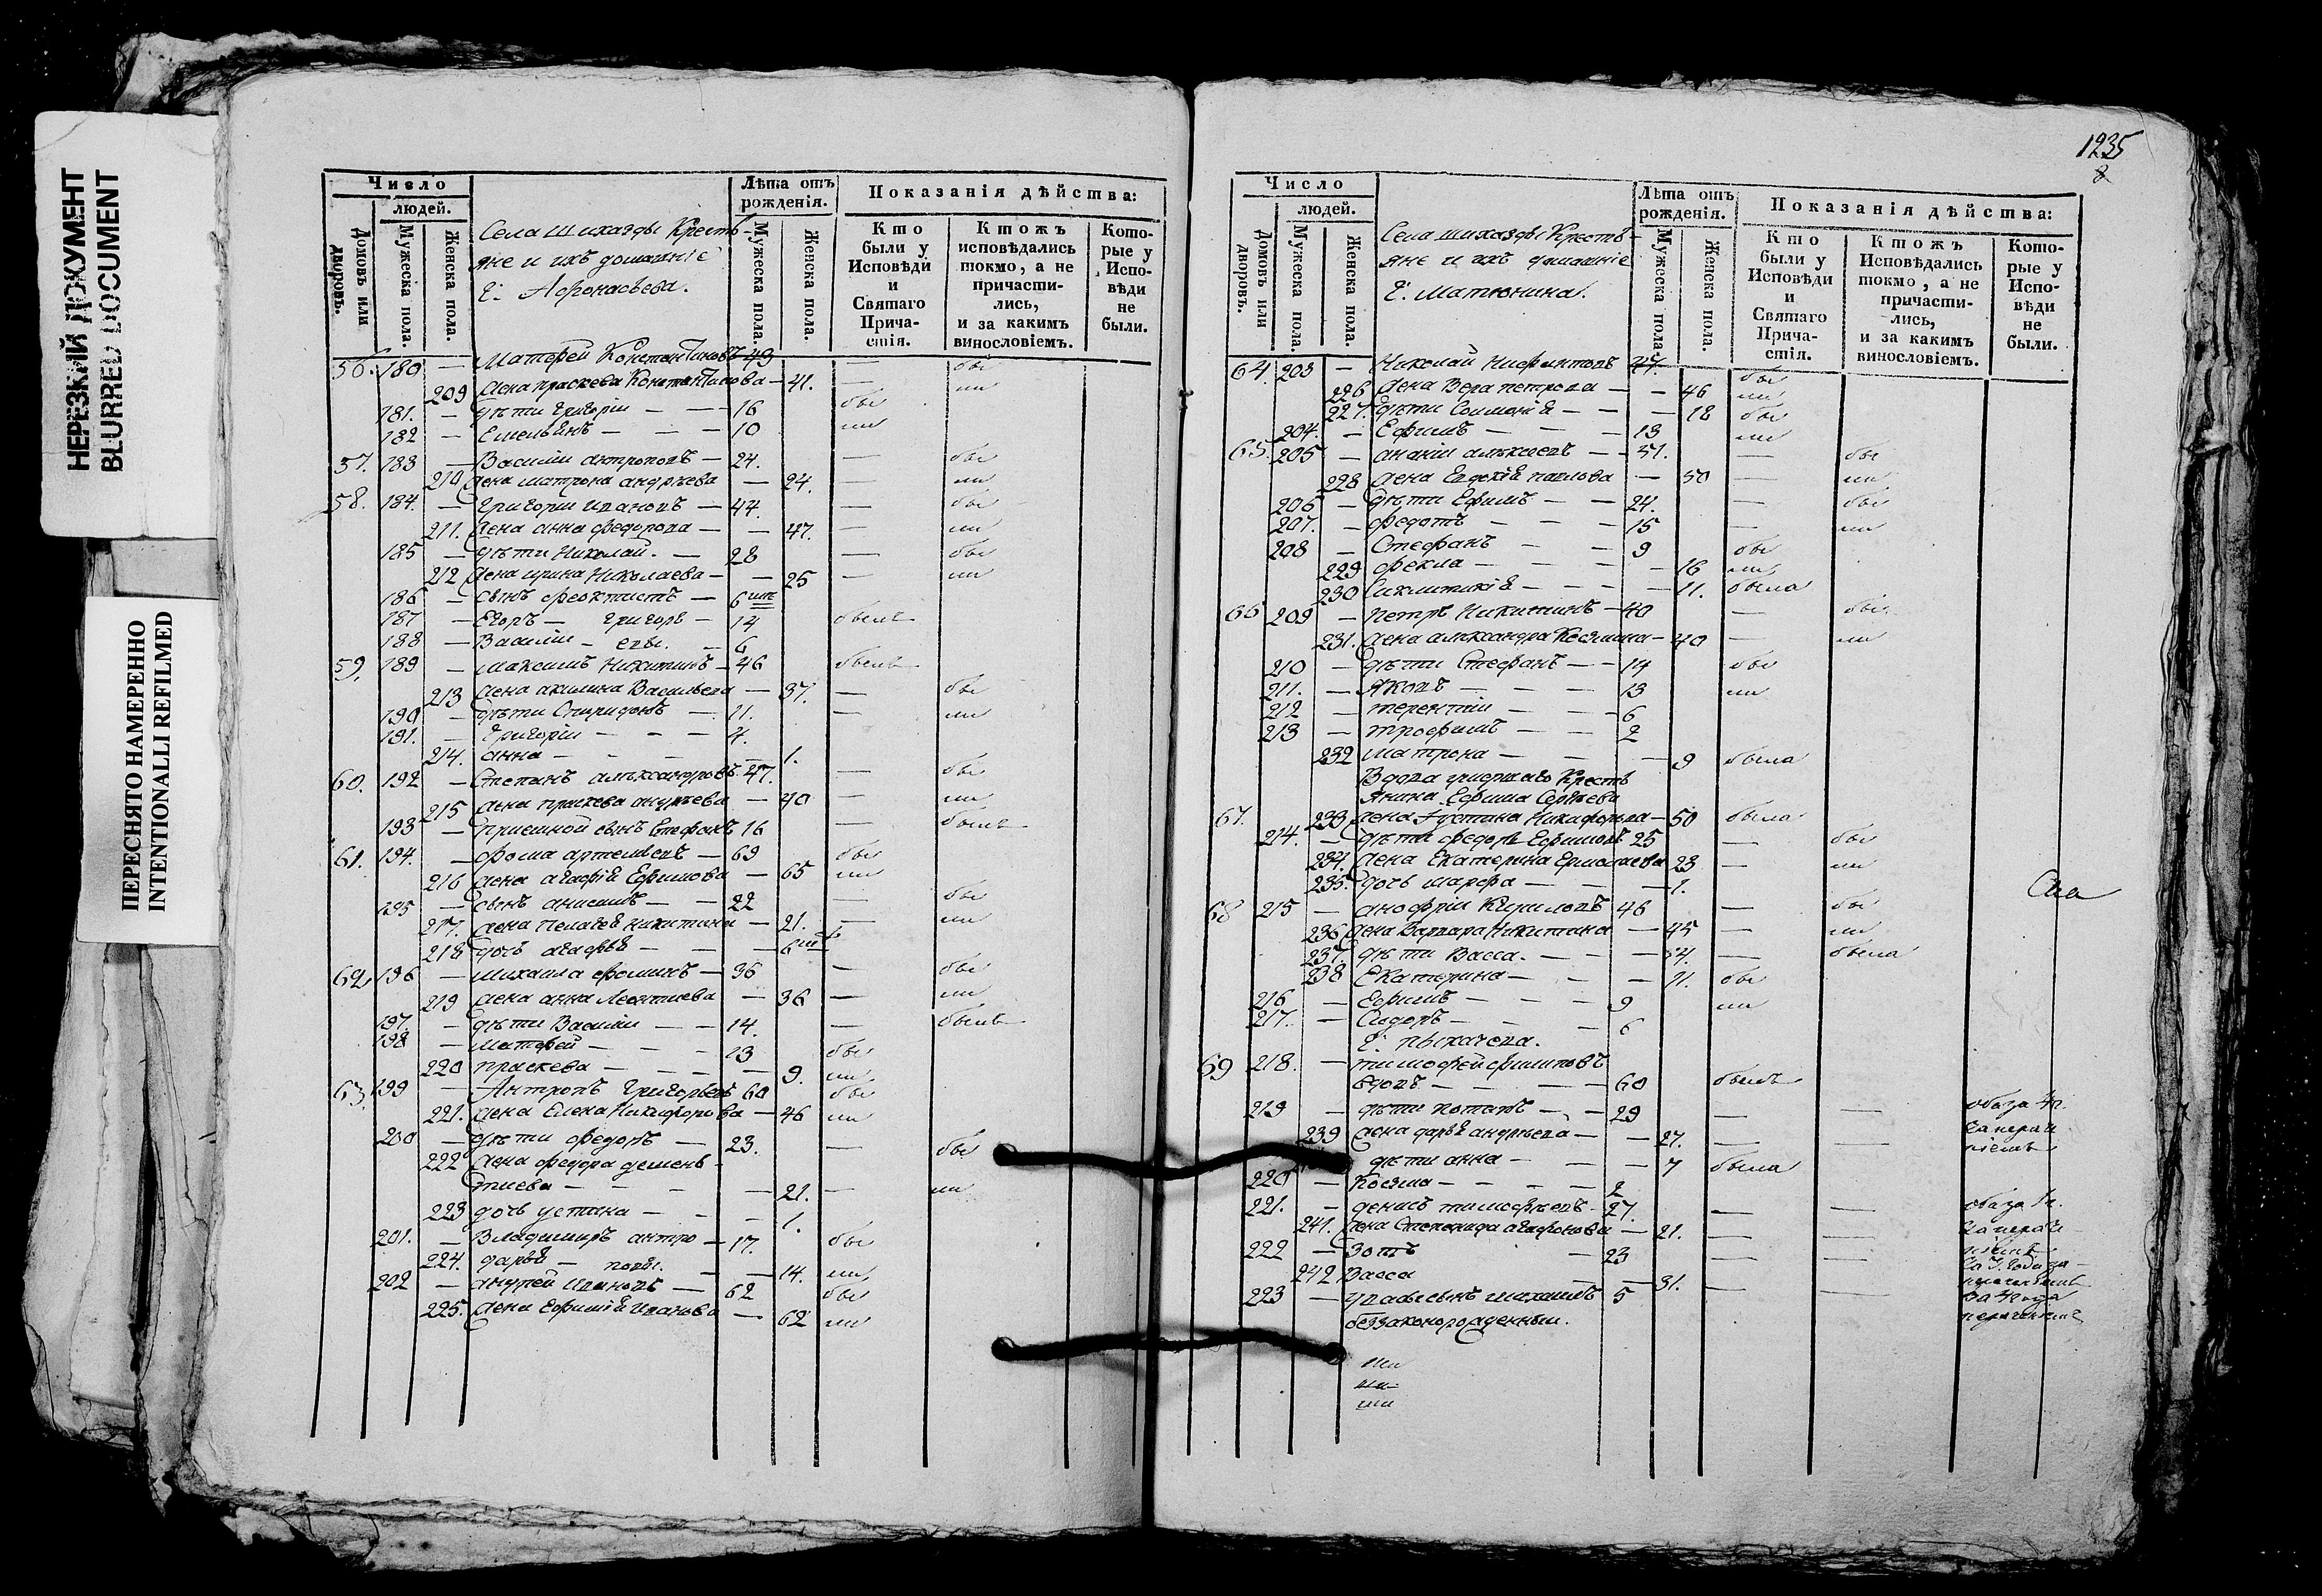 НЕРЕЗКИЙ ДОКУМЕНТ
BLURRED DOCUMENT
ПЕРЕСНЯТО НАМЕРЕННО
INTENTIONALLI REFILMED
Число
людей.
Домовъ или дворовъ.
Мужеска пола.
Женска пола.
Села Шихазды Кресть-
яне и ихъ домашніе
Афонасьева.
Лѣта отъ рожденія.
Мужеска пола.
Женска пола.
Показанія дѣйства:
Кто были у Исповѣди и Святаго Прича- стія.
Ктожъ исповѣдались токмо, а не причасти- лись, и за какимъ винословіемъ.
Кото- рые у Испо- вѣди не были.
56. 180 — Матфей Константиновъ 43 — бы
209 жена праскева Константинова — 41. — ли
181. — дѣти Григорій — — 16 бы
182 — Емельянъ — — — 10 ли
57. 183 — Василій антроповъ — 24. — бы
210 жена матрона андрѣева — 24. — ли
58. 184. — Григорій ивановъ — 44 — бы
211. жена анна федорова — — 47. — ли
185 — дѣти Николай. — 28 — бы
212 жена ирина Николаева — — 25 — ли
186 — сынъ феоктистъ — 6
187 — Егоръ — григорь — 14 былъ
188 — Василій — евы. — 6
59. 189 — максимъ Никитинъ — 46 былъ
213 жена акилина Васильева — 37. — бы
190 — дѣти Спиридонъ — 11. — ли
191. — Григорій — — — 4.
214. анна — — — — 1.
60. 192 — Степанъ алѣксандровъ 47. — бы
215 жена праскева андрѣева — 40 — ли
193 — приемной сынъ Стефанъ 16 — былъ
61. 194. — фома артемьевъ — 69 бы
216 жена агафія Ефимова — 65 ли
195 — сынъ анисимъ — — 22 — бы
217. жена Пелагея никитина — 21. — ли
218 дочь агафья — — — 6
62 196 — михаила фоминъ — 36 — бы
219 жена анна Леонтиева — 36 — ли
197. — дѣти Василій — — 14. — былъ
198 — матфей — — — 13 бы
220 праскева — — — — 9. ли
63. 199 — Антропъ Григорьевъ 60 бы
221. жена Елена Никифорова — 46 ли
200 — дѣти федоръ — 23. — бы
222 жена федора демень-
тиева — — — — 21. — ли
223 дочь устина — — — 1.
201. — Владимиръ антро — 17. бы
224. дарья — повы. — — 14. ли
202 — андрей ивановъ — 62 бы
225. жена Ефимія иванова — 62 ли
1235
8
Число
людей.
Домовъ или дворовъ.
Мужеска пола.
Женска пола.
Села шихазды Кресть-
яне и ихъ домашніе
Матюнина.
Лѣта отъ рожденія.
Мужеска пола.
Женска пола.
Показанія дѣйства:
Кто были у Исповѣди и Святаго Прича- стія.
Ктожъ Исповѣдались токмо, а не причасти- лись, и за какимъ винословіемъ.
Кото- рые у Испо- вѣди не были.
64. 203 — Николай Нифонтовъ 47. бы
226 жена Вера петрова — — 46 ли
227. дѣти Соломонія — — — 18 бы
204. — Ефимъ — — — 13 ли
65. 205 — ананій алѣксѣевъ — 51. — бы
228 жена Евдокія павлова — 50 — ли
206 — дѣти Ефимъ — — 24. — бы
207. — федотъ — — — 15 — ли
208 — Стефанъ — — 9 бы
229 фекла — — — — 16 ли
230 Сихлитикія — — — 11. была
66 209 — петръ Никитинъ — 40 — бы
231. жена алѣксандра Козмина — 40 — ли
210 — дѣти Стефанъ — — 14 бы
211. — Яковъ — — — 13 ли
212 — терентій — — — 6
213 — трофимъ — — 2
232 матрона — — — — 9 была
Вдова умершаго Кресть
янина Ефима Сергѣева
67. 233 жена Іустина Никифорова — 50 была
214. — дѣти федоръ Ефимовъ 25 — бы
234. жена Екатерина Ермолаева 23 — ли
235. дочь марфа — — — 1.
68 215 — анофрій Кириловъ 46 — бы
236 жена Варвара Никитина — 45 — ли
237. дѣти Васса. — — — — была
238 Екатерина — — — 11. бы
216 — Ефимъ — — — 9 ли
217. — Сидоръ — — — 6
Пыхачева.
69 218. — тимофей филиповъ
вдовъ — — — — 60 былъ
219 — дѣти потапъ — — 29 — —
239 жена дарья андрѣева — — 27. — —
дѣти анна — — — 7 была
220 — Козма — — — — 2
221. — денисъ тимофѣевъ — 27. — —
241. жена Степанида агафонова — 21. — —
222 — Зотъ — 23 — —
242 Васса — — 31. — —
223 — у Вассы сынъ михаилъ 5
беззаконорожденный.